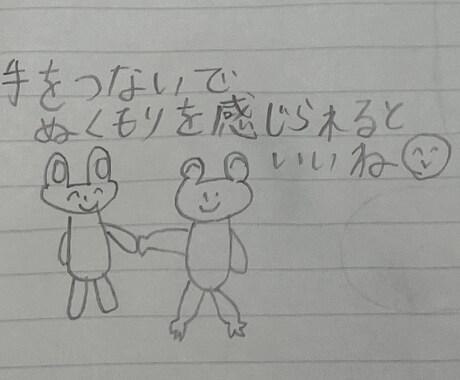 手をつないで
ぬくもりを感じられると
いいね